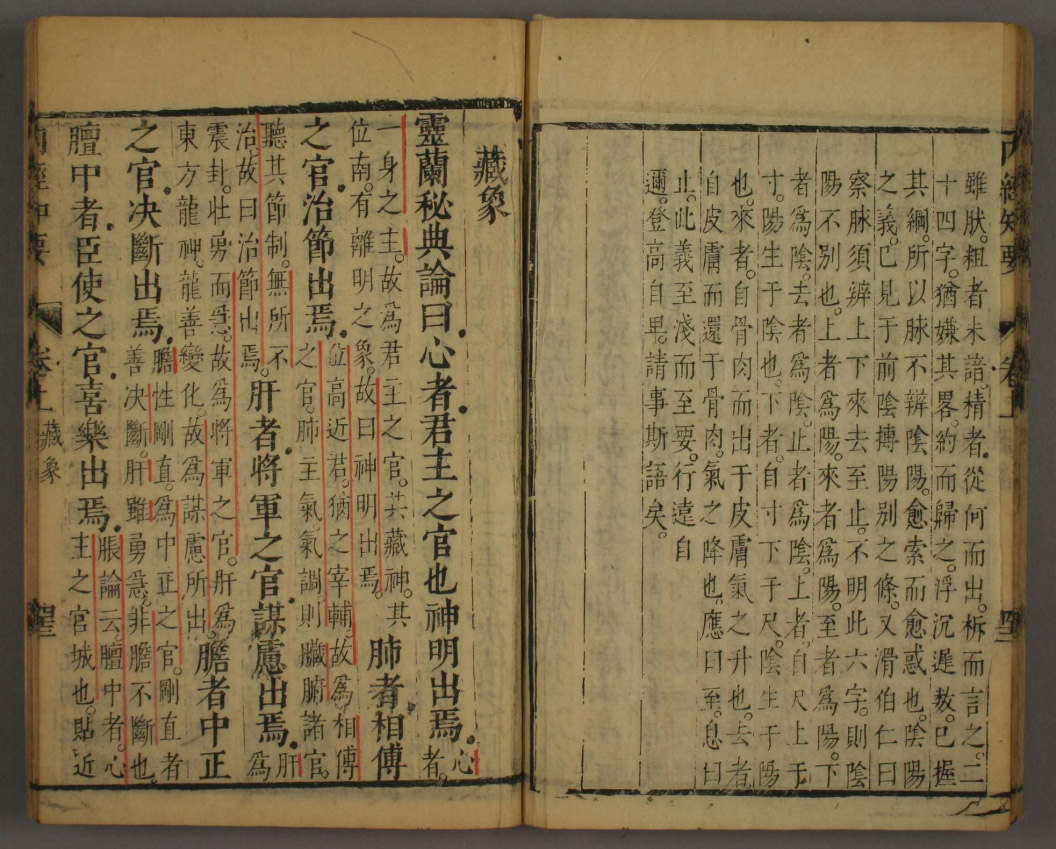 內經知要 卷上
雖肰。粗者未諳。精者。從何而出。析而言之。二
十四字。猶嫌其畧。約而歸之。浮沉遲數。已握
其綱。所以脉不辨陰陽。愈索而愈惑也。陰陽
之義。已見于前陰搏陽別之條。又滑伯仁曰
察脉須辨上下來去至止。不明此六字。則陰
陽不別也。上者為陽。來者為陽。至者為陽。下
者為陰。去者為陰。止者為陰。上者。自尺上于
寸。陽生于陰也。下者。自寸下于尺。陰生于陽
也。來者。自骨肉而出于皮膚氣之升也。去者
自皮膚而還于骨肉。氣之降也。應曰至。息曰
止。此義至淺而至要。行遠自
邇。登高自卑。請事斯語矣。
藏象
靈蘭秘典論曰。心者。君主之官也神明出焉。心者。
一身之主。故為君主之官。其藏神。其位南。有離明之象。故曰神明出焉。肺者相傅
之官。治節出焉。位高近君。猶之宰輔。故為相傅之官。肺主氣。氣調則臟腑諸官。
聽其節制。無所不治。故曰治節出焉。肝者。將軍之官。謀慮出焉。肝為
震卦。壯勇而急。故為將軍之官。肝為東方龍神。龍善變化。故為謀慮所出。膽者中正
之官。決斷出焉。膽性剛直。為中正之官。剛直者善決斷。肝雖勇急。非膽不斷也。
膻中者。臣使之官。喜樂出焉。脹論云。膻中者。心主之官城也。貼近
內經知要 卷上 藏象